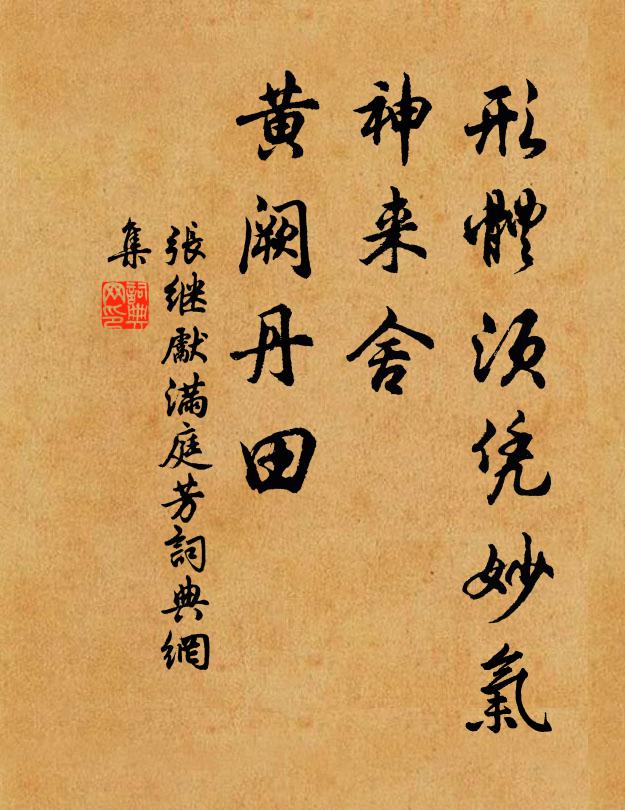 形體須凭妙氣
神来舍
黄阙丹田
張继獻滿庭芳詞典網
集
詞典
网印